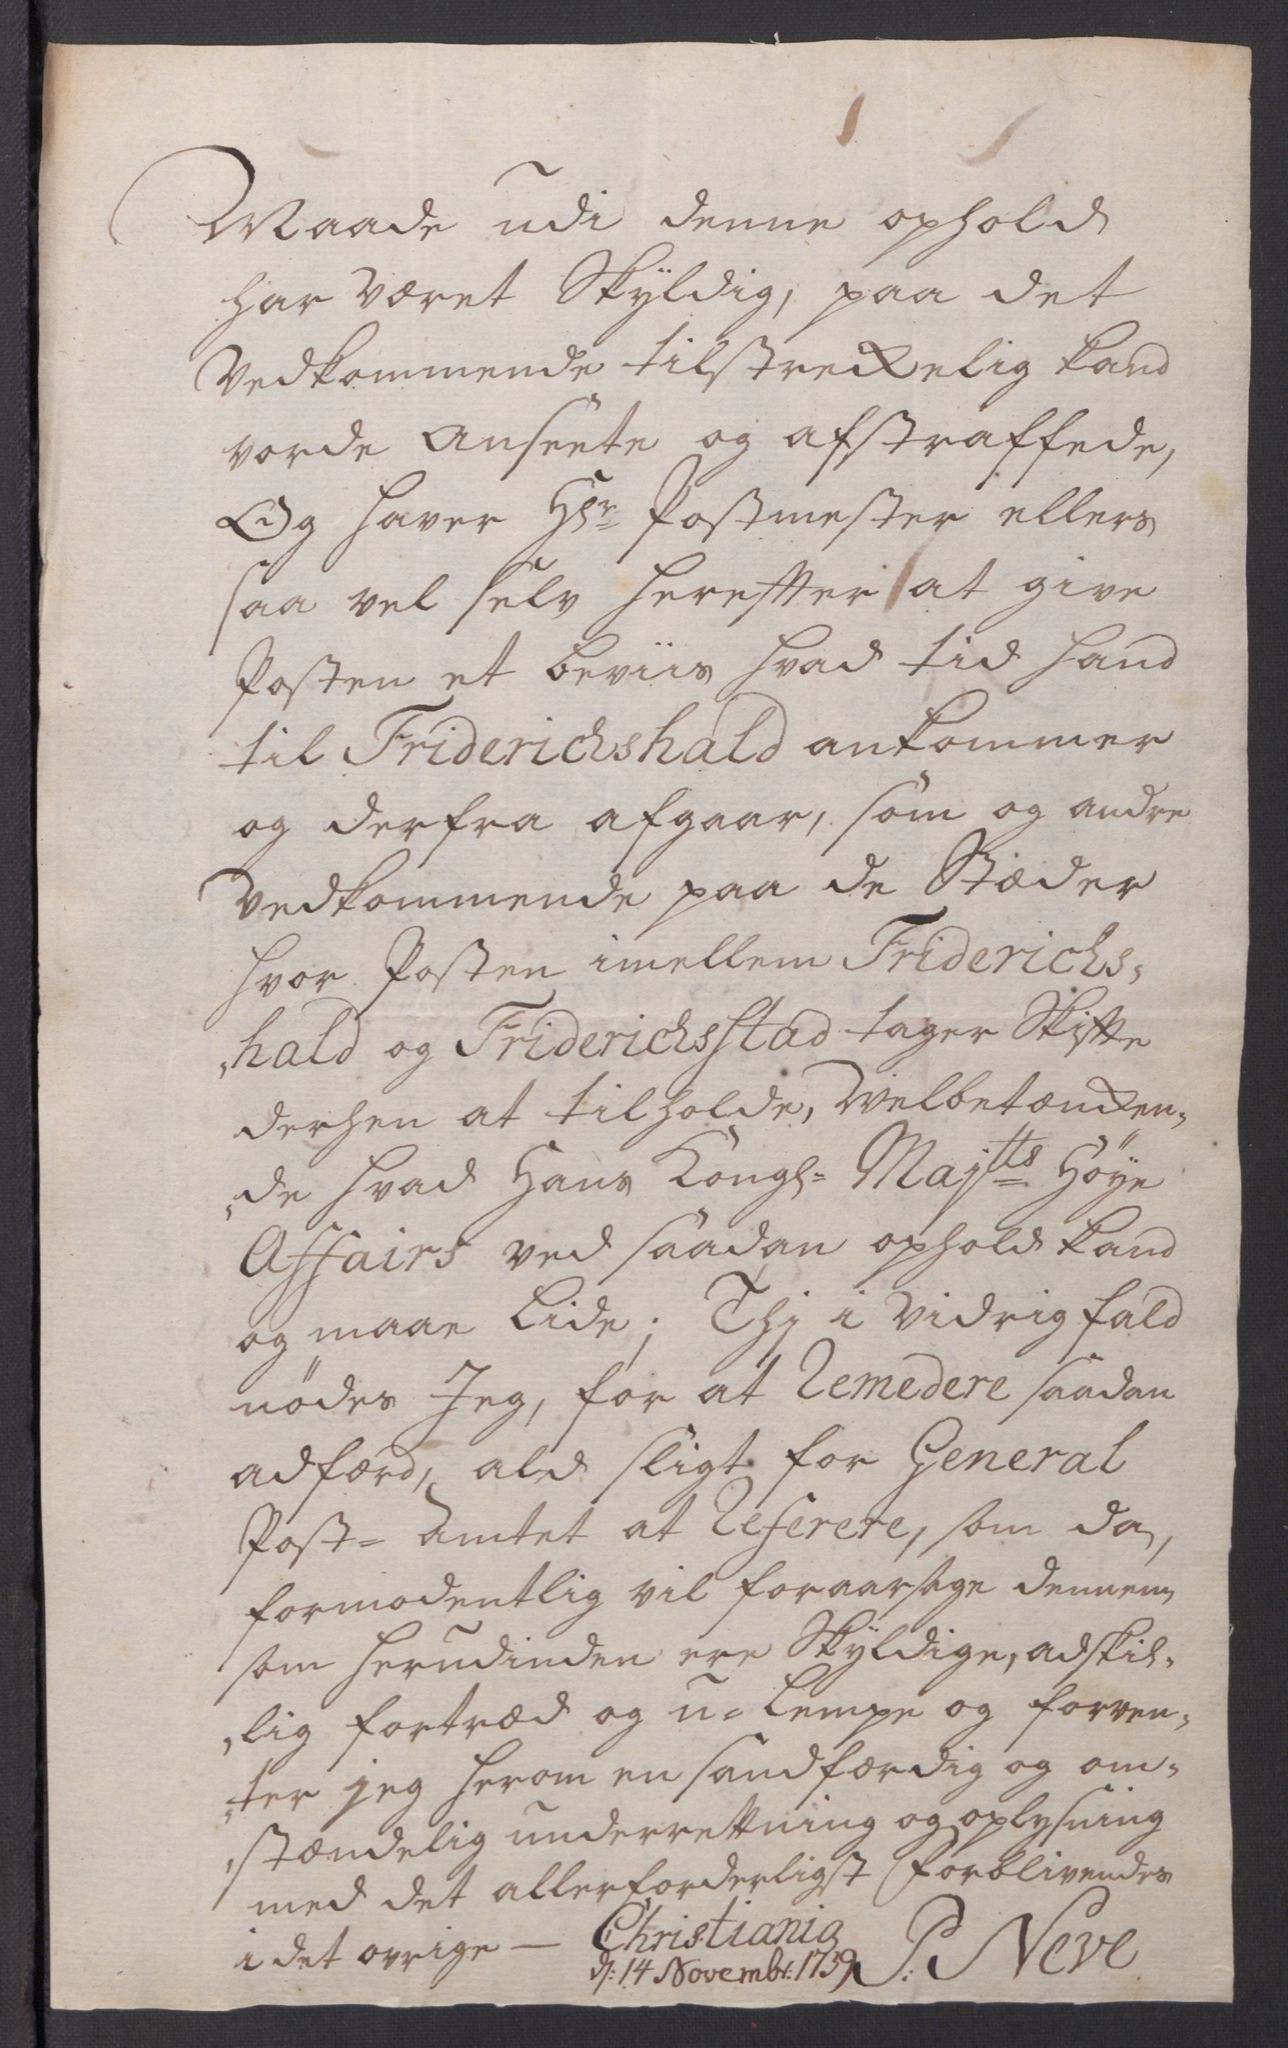 Maade udi denne ophold
har været Skÿldig, paa det
Vedkommende tilstreckelig kand
vorde anseete og afstraffede,
Og haver Hr Postmester ellers
saa vel selv herefter at give
Posten et beviis hvad tid hand
til Friderichshald ankommer
og derfra afgaar, som og andre
Vedkommende paa de Stæder
hvor Posten imellem Friderichs,
,hald og Friderichsstad tager Skifte
derhen at tilholde, Velbetæncken,
,de hvad Hans Kongl= Majtts Höÿe
Affairs ved saadan ophold kand
og maae Lide; Thj i Vidrig fald
nödes Jeg, for at Remedere saadan
adfærd, ald sligt for General
Post= Amtet at Referere, som da,
formodentlig vil foraarsage dennem,
som herudinden ere Skÿldige, adskil,
,lig fortræd og u= Lempe og forven,
,ter jeg herom en sandfærdig og om,
,stændelig underretning og oplysning
med det allerforderligst forblivendes
i det ovrige — Christiania
d: 14 Novembr: 1739 P: Neve